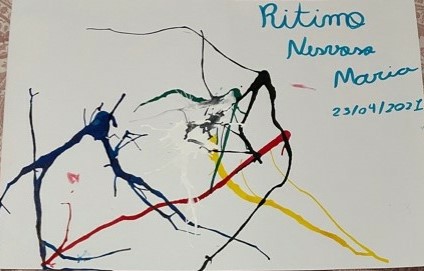 Ritimo
Nervoso
Maria
23/04/2021